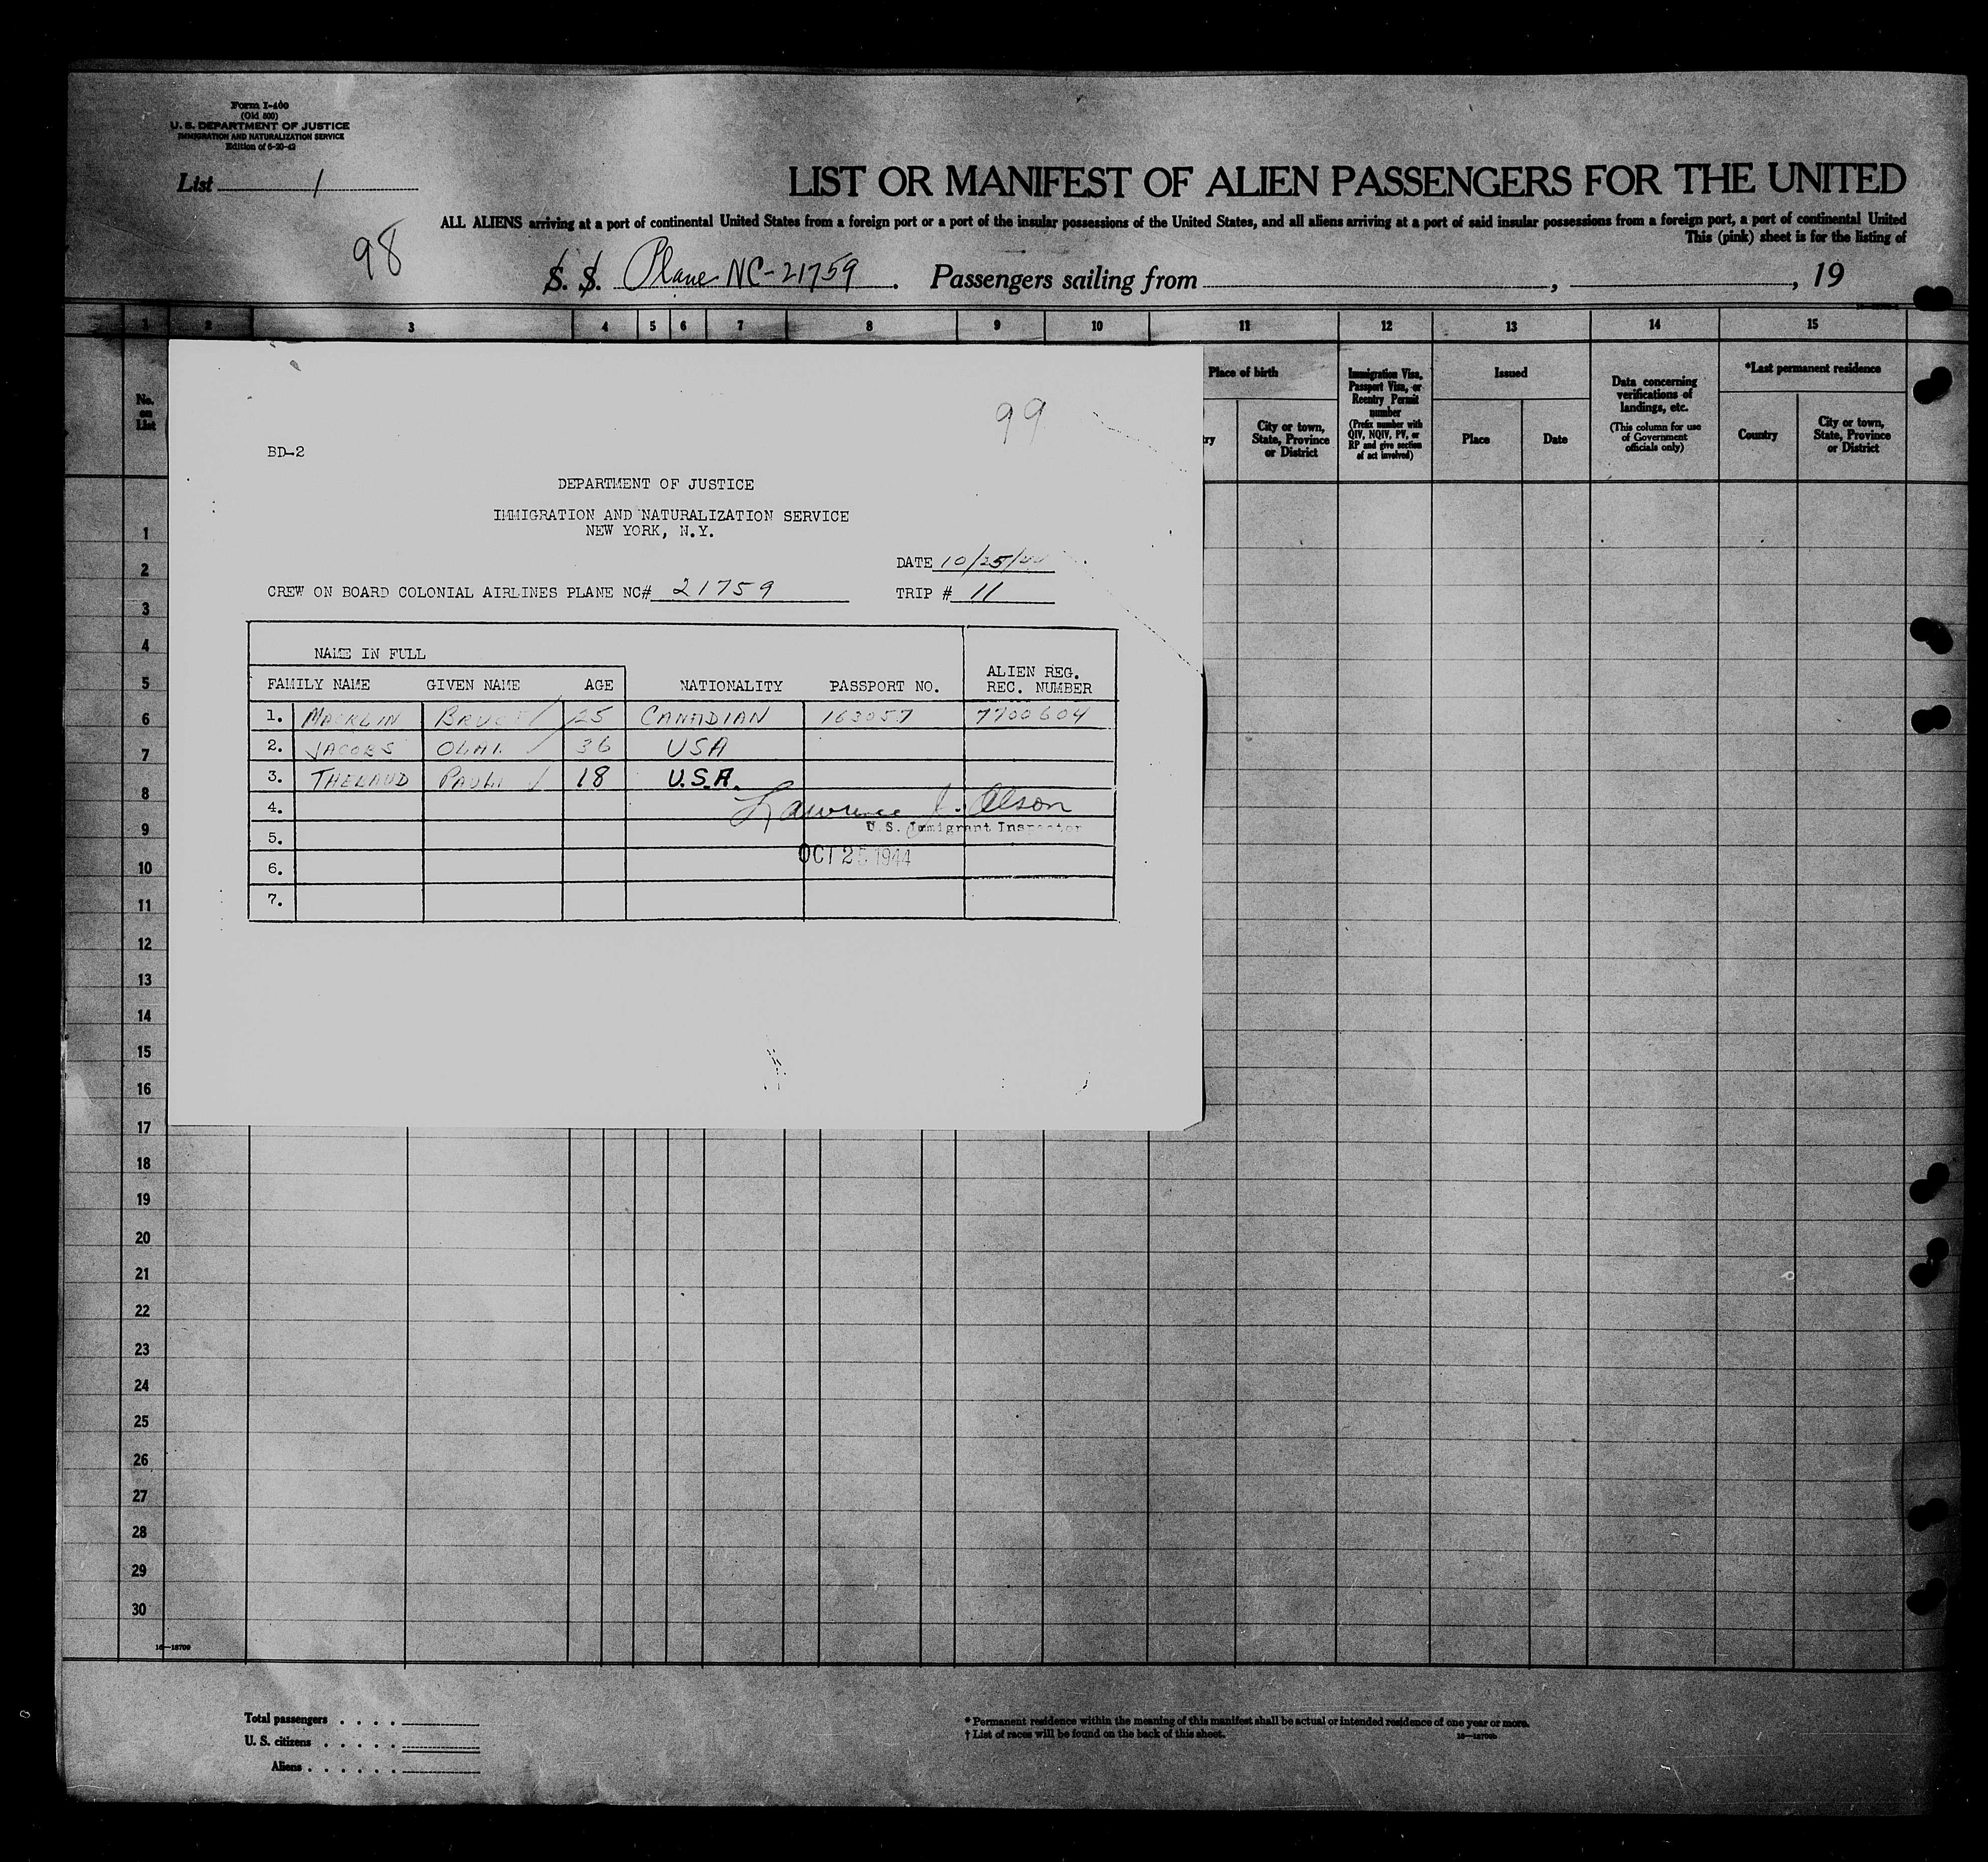 Form I-400
(Old 500)
U. S. DEPARTMENT OF JUSTICE
IMMIGRATION AND NATURALIZATION SERVICE
Edition of 6-20-42
List 1
LIST OR MANIFEST OF ALIEN PASSENGERS FOR THE UNITED
ALL ALIENS arriving at a port of continental United States from a foreign port or a port of the insular possessions of the United States, and all aliens arriving at a port of said insular possessions from a foreign port, a port of continental United
This (pink) sheet is for the listing of
98
S. S. Plane NC-21759. Passengers sailing from , , 19
1 2 3 4 5 6 7 8 9 10 11 12 13 14 15
No. on List
Place of birth
City or town, State, Province or District
Immigration Visa, Passport Visa, or Reentry Permit number
(Prefix number with QIV, NQIV, PV, or RP and give section of act involved)
Issued
Place Date
Data concerning verifications of landings, etc.
(This column for use of Government officials only)
*Last permanent residence
Country
City or town, State, Province or District
99
BD-2
DEPARTMENT OF JUSTICE
IMMIGRATION AND NATURALIZATION SERVICE
NEW YORK, N.Y.
DATE 10/25/44
CREW ON BOARD COLONIAL AIRLINES PLANE NC# 21759 TRIP # 11
NAME IN FULL
FAMILY NAME GIVEN NAME AGE NATIONALITY PASSPORT NO. ALIEN REG. REC. NUMBER
1. MACKLIN BRUCE 25 CANADIAN 163057 7700604
2. JACOBS 36 USA
3. 18 U.S.A.
4.
Lawrence J. Olson
U. S. Immigrant Inspector
5.
OCT 25 1944
6.
7.
1
2
3
4
5
6
7
8
9
10
11
12
13
14
15
16
17
18
19
20
21
22
23
24
25
26
27
28
29
30
16—18709
Total passengers . . . .
U. S. citizens . . . . .
Aliens . . . . . .
* Permanent residence within the meaning of this manifest shall be actual or intended residence of one year or more.
† List of races will be found on the back of this sheet.